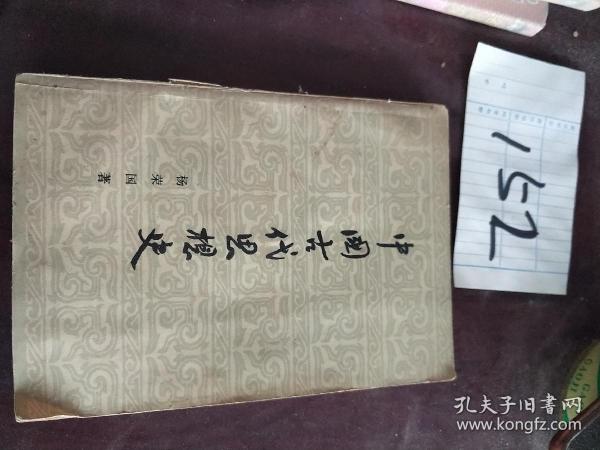 中国古代思想史
杨荣国著
152
孔夫子旧书网
www.kongfz.com